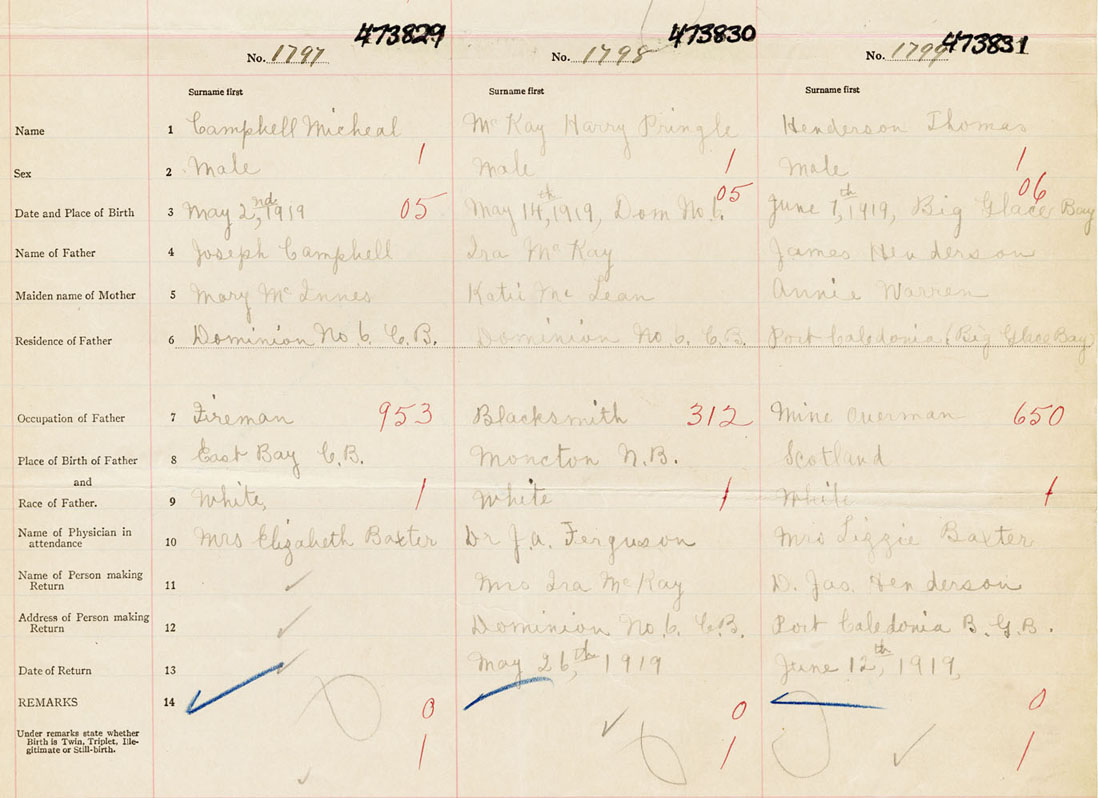 473829 473830 473831
No. 1797 No. 1798 No. 1799
Surname first Surname first Surname first
Name 1 Campbell Micheal McKay Harry Pringle Henderson Thomas
Sex 2 Male 1 Male 1 Male 1
Date and Place of Birth 3 May 2nd, 1919 05 May 14th, 1919, Dom No 6. 05 June 7th, 1919, Big Glace Bay 06
Name of Father 4 Joseph Campbell Ira McKay James Henderson
Maiden name of Mother 5 Mary McInnes Katie McLean Annie Warren
Residence of Father 6 Dominion No 6. C.B. Dominion No 6. C.B. Port Caledonia (Big Glace Bay)
Occupation of Father 7 Fireman 953 Blacksmith 312 Mine Overman 650
Place of Birth of Father 8 East Bay C.B. Moncton N.B. Scotland
and
Race of Father. 9 White, 1 White 1 White 1
Name of Physician in
attendance 10 Mrs Elizabeth Baxter Dr J.A. Ferguson Mrs Lizzie Baxter
Name of Person making
Return 11 Mrs Ira McKay D. Jas. Henderson
Address of Person making
Return 12 Dominion No 6. C.B. Port Caledonia B.G.B.
Date of Return 13 May 26th, 1919 June 12th, 1919,
REMARKS 14 0 0 0
Under remarks state whether
Birth is Twin, Triplet, Ille-
gitimate or Still-birth. 1 1 1